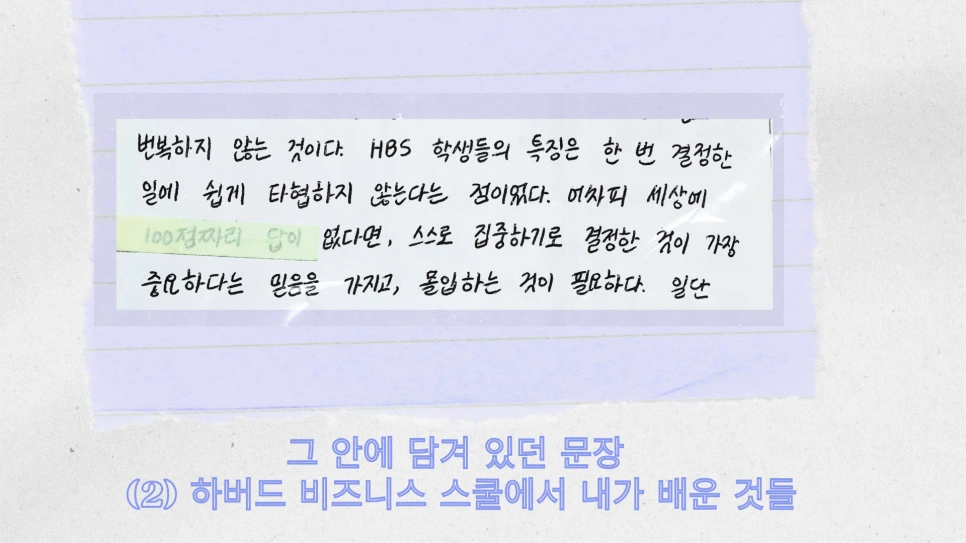 번복하지 않는 것이다. HBS 학생들의 특징은 한 번 결정한
일에 쉽게 타협하지 않는다는 점이었다. 어차피 세상에
100점짜리 답이 없다면, 스스로 집중하기로 결정한 것이 가장
중요하다는 믿음을 가지고, 몰입하는 것이 필요하다. 일단
그 안에 담겨 있던 문장
(2) 하버드 비즈니스 스쿨에서 내가 배운 것들